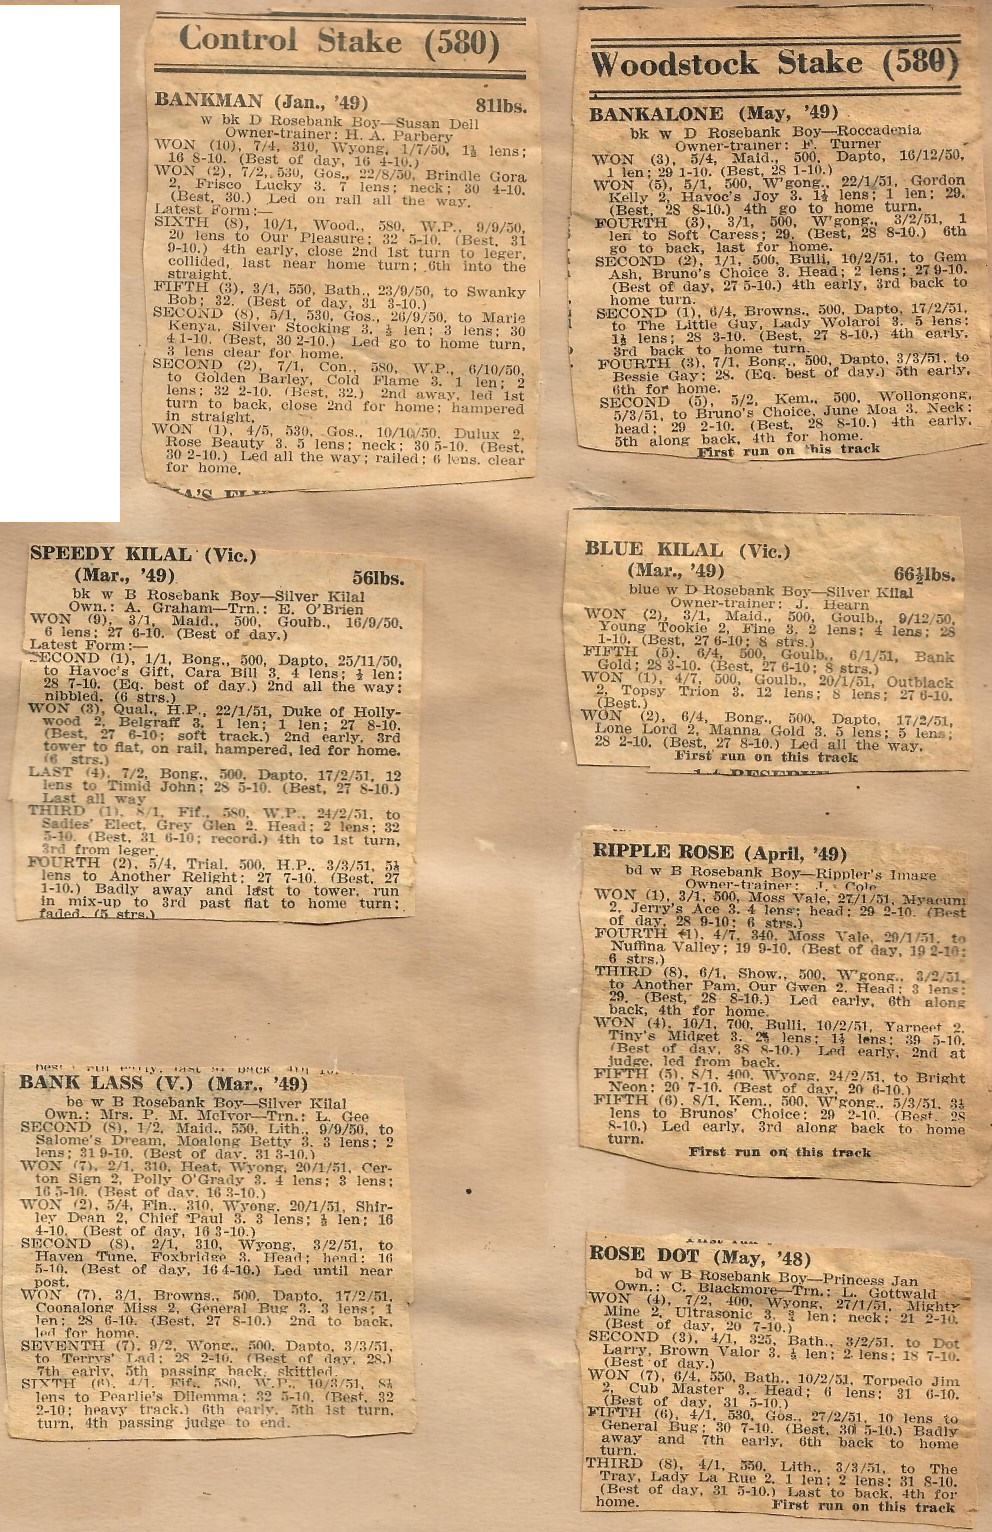 Control Stake (580)
BANKMAN (Jan., '49) 81lbs.
w bk D Rosebank Boy—Susan Dell
Owner-trainer: H. A. Parbery
WON (10), 7/4, 310, Wyong, 1/7/50, 1½ lens;
16 8-10. (Best of day, 16 4-10.)
WON (2), 7/2, 530, Gos., 22/8/50, Brindle Gora
2, Frisco Lucky 3. 7 lens; neck; 30 4-10.
(Best, 30.) Led on rail all the way.
Latest Form:—
SIXTH (8), 10/1, Wood., 580, W.P., 9/9/50,
20 lens to Our Pleasure; 32 5-10. (Best, 31
9-10.) 4th early, close 2nd 1st turn to leger,
collided, last near home turn; 6th into the
straight.
FIFTH (3), 3/1, 550, Bath., 23/9/50, to Swanky
Bob; 32. (Best of day, 31 3-10.)
SECOND (8), 5/1, 530, Gos., 26/9/50, to Marie
Kenya, Silver Stocking 3. ½ len; 3 lens; 30
4 1-10. (Best, 30 2-10.) Led go to home turn,
3 lens clear for home.
SECOND (2), 7/1, Con., 580, W.P., 6/10/50,
to Golden Barley, Cold Flame 3. 1 len; 2
lens; 32 2-10. (Best, 32.) 2nd away, led 1st
turn to back, close 2nd for home; hampered
in straight.
WON (1), 4/5, 530, Gos., 10/10/50, Dulux 2,
Rose Beauty 3. 5 lens; neck; 30 5-10. (Best,
30 2-10.) Led all the way; railed; 6 lens. clear
for home.
Woodstock Stake (580)
BANKALONE (May, '49)
bk w D Rosebank Boy—Roccadenia
Owner-trainer: F. Turner
WON (3), 5/4, Maid., 500, Dapto, 16/12/50,
1 len; 29 1-10. (Best, 28 1-10.)
WON (5), 5/1, 500, W'gong., 22/1/51, Gordon
Kelly 2, Havoc's Joy 3. 1½ lens; 1 len; 29.
(Best, 28 8-10.) 4th go to home turn.
FOURTH (3), 3/1, 500, W'gong., 3/2/51, 1
len to Soft Caress; 29. (Best, 28 8-10.) 6th
go to back, last for home.
SECOND (2), 1/1, 500, Bulli, 10/2/51, to Gem
Ash, Bruno's Choice 3. Head; 2 lens; 27 9-10.
(Best of day, 27 5-10.) 4th early, 3rd back to
home turn.
SECOND (1), 6/4, Browns., 500, Dapto, 17/2/51,
to The Little Guy, Lady Wolaroi 3. 5 lens;
1½ lens; 28 3-10. (Best, 27 8-10.) 4th early,
3rd back to home turn.
FOURTH (3), 7/1, Bong., 500, Dapto, 3/3/51, to
Bessie Gay; 28. (Eq. best of day.) 5th early,
6th for home.
SECOND (5), 5/2, Kem., 500, Wollongong,
5/3/51, to Bruno's Choice, June Moa 3. Neck;
head; 29 2-10. (Best, 28 8-10.) 4th early,
5th along back, 4th for home.
First run on this track
SPEEDY KILAL (Vic.)
(Mar., '49) 56lbs.
bk w B Rosebank Boy—Silver Kilal
Own.: A. Graham—Trn.: E. O'Brien
WON (9), 3/1, Maid., 500, Goulb., 16/9/50,
6 lens; 27 6-10. (Best of day.)
Latest Form:—
SECOND (1), 1/1, Bong., 500, Dapto, 25/11/50,
to Havoc's Gift, Cara Bill 3. 4 lens; ½ len;
28 7-10. (Eq. best of day.) 2nd all the way;
nibbled. (6 strs.)
WON (3), Qual., H.P., 22/1/51, Duke of Holly-
wood 2, Belgraff 3. 1 len; 1 len; 27 8-10.
(Best, 27 6-10; soft track.) 2nd early, 3rd
tower to flat, on rail, hampered, led for home.
(6 strs.)
LAST (4), 7/2, Bong., 500, Dapto, 17/2/51, 12
lens to Timid John; 28 5-10. (Best, 27 8-10.)
Last all way
THIRD (1), 8/1, Fif., 580, W.P., 24/2/51, to
Sadies' Elect, Grey Glen 2. Head; 2 lens; 32
5-10. (Best, 31 6-10; record.) 4th to 1st turn,
3rd from leger.
FOURTH (2), 5/4, Trial, 500, H.P., 3/3/51, 5½
lens to Another Relight; 27 7-10. (Best, 27
1-10.) Badly away and last to tower, run
in mix-up to 3rd past flat to home turn;
faded. (5 strs.)
BLUE KILAL (Vic.)
(Mar., '49) 66½lbs.
blue w D Rosebank Boy—Silver Kilal
Owner-trainer: J. Hearn
WON (2), 3/1, Maid., 500, Goulb., 9/12/50,
Young Tookie 2, Fine 3. 2 lens; 4 lens; 28
1-10. (Best, 27 6-10; 8 strs.)
FIFTH (5). 6/4, 500, Goulb., 6/1/51, Bank
Gold; 28 3-10. (Best, 27 6-10; 8 strs.)
WON (1), 4/7, 500, Goulb., 20/1/51, Outblack
2, Topsy Trion 3. 12 lens; 8 lens; 27 6-10.
(Best.)
WON (2), 6/4, Bong., 500, Dapto, 17/2/51,
Lone Lord 2, Manna Gold 3. 5 lens; 5 lens;
28 2-10. (Best, 27 8-10.) Led all the way.
First run on this track
RIPPLE ROSE (April, '49)
bd w B Rosebank Boy—Rippler's Image
Owner-trainer: J. Cole
WON (1), 3/1, 500, Moss Vale, 27/1/51, Myacum
2, Jerry's Ace 3. 4 lens; head; 29 2-10. (Best
of day, 28 9-10; 6 strs.)
FOURTH (1), 4/7, 340, Moss Vale, 29/1/51, to
Nuffina Valley; 19 9-10. (Best of day, 19 2-10;
6 strs.)
THIRD (8), 6/1, Show., 500, W'gong., 3/2/51,
to Another Pam, Our Gwen 2. Head; 3 lens;
29. (Best, 28 8-10.) Led early, 6th along
back, 4th for home.
WON (4), 10/1, 700, Bulli, 10/2/51, Yarneet 2,
Tiny's Midget 3. lens; 1½ lens; 39 5-10.
(Best of day, 38 8-10.) Led early, 2nd at
judge, led from back.
FIFTH (5), 8/1, 400, Wyong, 24/2/51, to Bright
Neon; 20 7-10. (Best of day, 20 6-10.)
FIFTH (6), 8/1, Kem., 500, W'gong., 5/3/51, 3½
lens to Brunos' Choice; 29 2-10. (Best, 28
8-10.) Led early, 3rd along back to home
turn.
First run on this track
BANK LASS (V.) (Mar., '49)
be w B Rosebank Boy—Silver Kilal
Own.: Mrs. P. M. McIvor—Trn.: L. Gee
SECOND (8), 1/2, Maid., 550, Lith., 9/9/50, to
Salome's Dream, Moalong Betty 3. 3 lens; 2
lens; 31 9-10. (Best of day, 31 3-10.)
WON (7), 2/1, 310, Heat, Wyong, 20/1/51, Cer-
ton Sign 2, Polly O'Grady 3. 4 lens; 3 lens;
16 5-10. (Best of day, 16 3-10.)
WON (2), 5/4, Fin., 310, Wyong, 20/1/51, Shir-
ley Dean 2, Chief Paul 3. 3 lens; ½ len; 16
4-10. (Best of day, 16 3-10.)
SECOND (8), 2/1, 310, Wyong, 3/2/51, to
Haven Tune, Foxbridge 3. Head; head; 16
5-10. (Best of day, 16 4-10.) Led until near
post.
WON (7), 3/1, Browns., 500, Dapto, 17/2/51,
Coonalong Miss 2, General Bug 3. 3 lens; 1
len; 28 6-10. (Best, 27 8-10.) 2nd to back,
led for home.
SEVENTH (7), 9/2, Wong., 500, Dapto, 3/3/51,
to Terrys' Lad; 28 2-10. (Best of day, 28.)
7th early, 5th passing back, skittled.
SIXTH (6), 4/1, Fif., 580, W.P., 10/3/51, 8½
lens to Pearlie's Dilemma; 32 5-10. (Best, 32
2-10; heavy track.) 6th early, 5th 1st turn,
turn, 4th passing judge to end.
ROSE DOT (May, '48)
bd w B Rosebank Boy—Princess Jan
Own.: C. Blackmore—Trn.: L. Gottwald
WON (4), 7/2, 400, Wyong, 27/1/51, Mighty
Mine 2, Ultrasonic 3. ¾ len; neck; 21 2-10.
(Best of day, 20 7-10.)
SECOND (3), 4/1, 325, Bath., 3/2/51, to Dot
Larry, Brown Valor 3. ½ len; 2 lens; 18 7-10.
(Best of day.)
WON (7), 6/4, 550, Bath., 10/2/51, Torpedo Jim
2, Cub Master 3. Head; 6 lens; 31 6-10.
(Best of day, 31 5-10.)
FIFTH (6), 4/1, 530, Gos., 27/2/51, 10 lens to
General Bug; 30 7-10. (Best, 30 5-10.) Badly
away and 7th early, 6th back to home
turn.
THIRD (8), 4/1, 550, Lith., 3/3/51, to The
Tray, Lady La Rue 2. 1 len; 2 lens; 31 8-10.
(Best of day, 31 5-10.) Last to back, 4th for
home. First run on this track